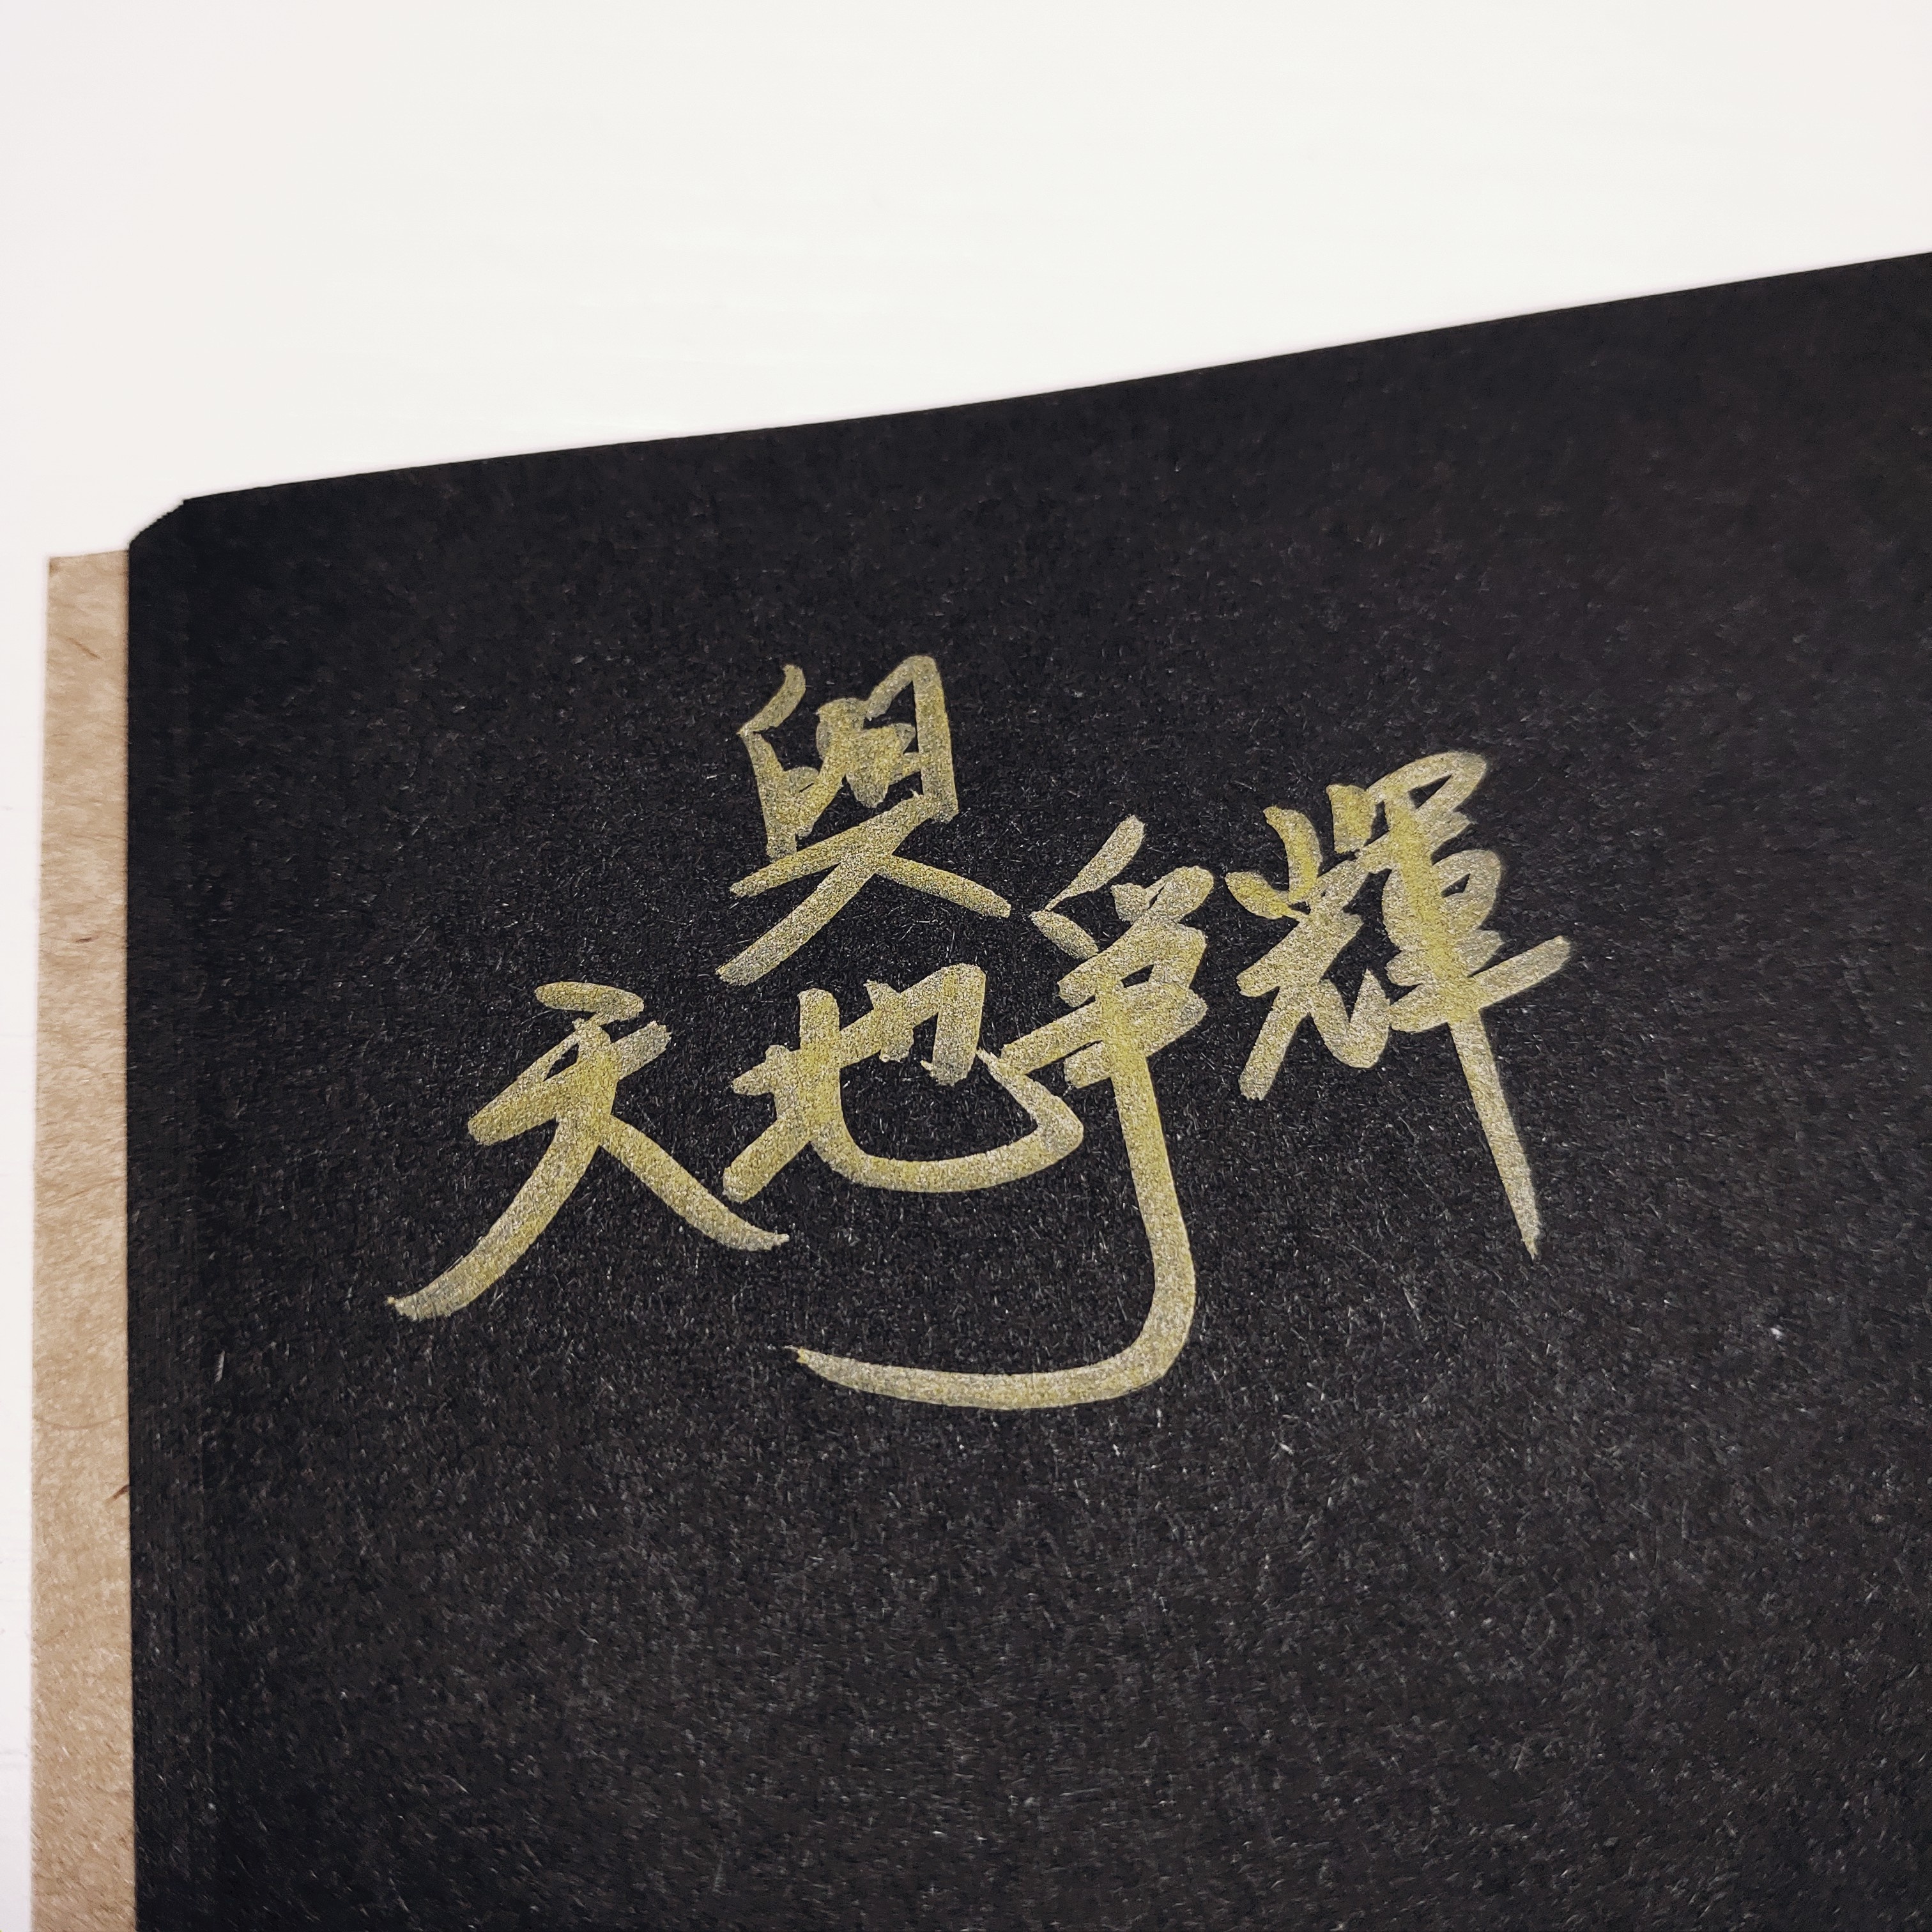 與
天地爭輝